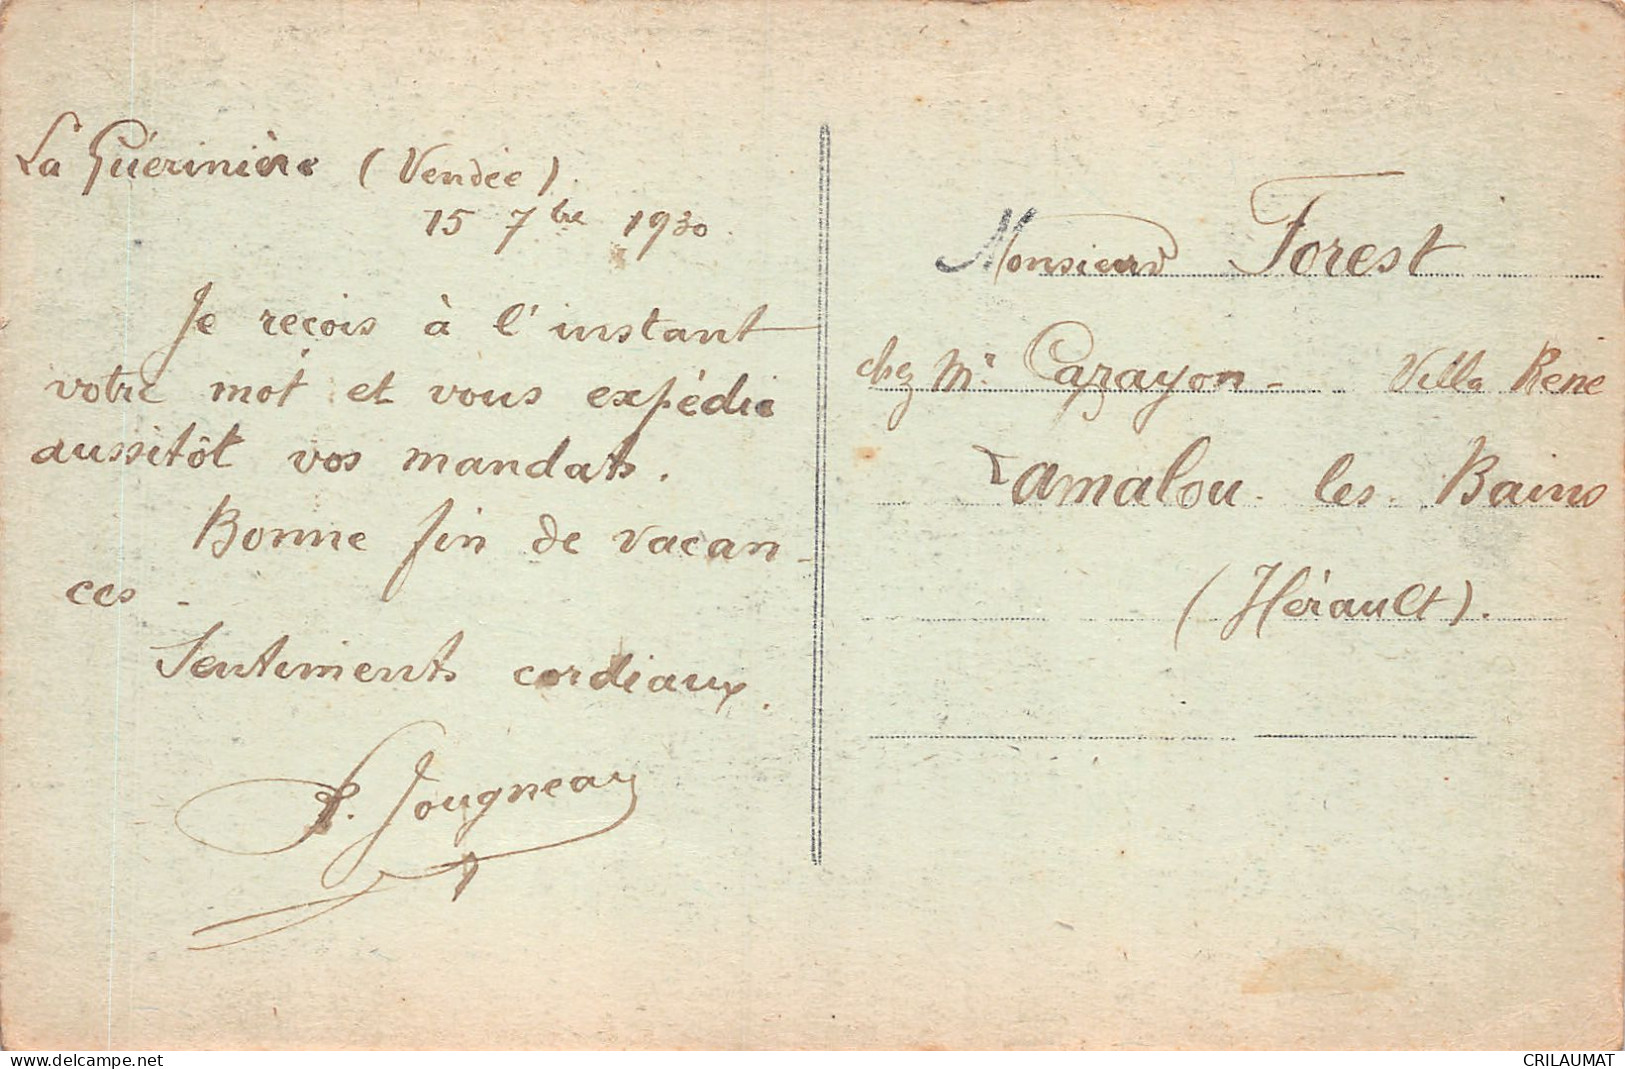 La Guérinière (Vendée)
15 7bre 1930
Je reçois à l'instant
votre mot et vous expédie
aussitôt vos mandats.
Bonne fin de vacan-
ces.
Sentiments cordiaux.
F. Jougneau
Monsieur Forest
chez Mr Cazayon - Villa René
Lamalou les Bains
(Hérault).
www.delcampe.net
CRILAUMAT